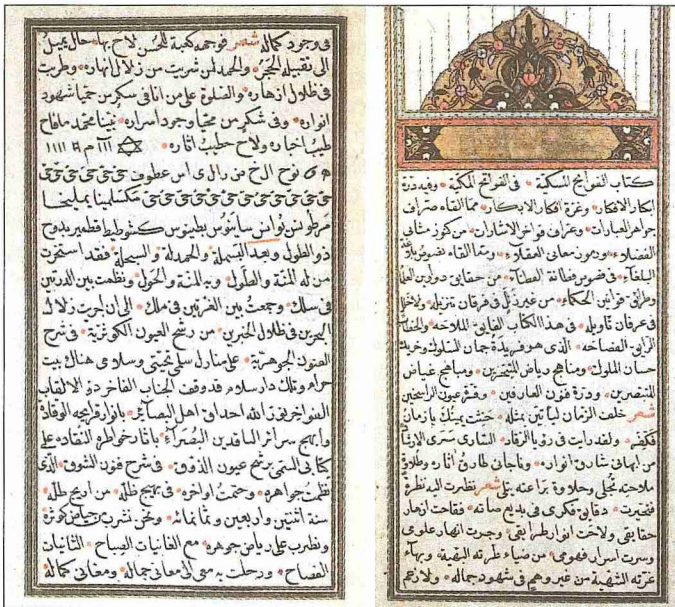 كتاب الفوايح المسكية في الفواتح المكية وفيه درة
ابكار الافكار وغرة افكار الابكار مما القاه صراف
جواهر العبارات وعراف فواخر الاشارات من كنوز مثاني
الفضلاء ورموز معاني العقلاء ومما القاه نصوص
البلغاء في فصوص فطانة الفطناء من حقايق دواوين
وطرائق قوانين الحكماء من غير في فرقان تنزيله ولا
في عرفان تأويله في هذا الكتاب الفايق الملاحة
الرايق الفصاحة الذي هو فريدة جمان السلوك
حسان الملوك ومناهج رياض المتبحرين ومباهج غياض
المتبصرين ودرة فنون العارفين وقرة عيون الراسخين
شعر خلف الزمان ليأتين بمثله حنثت يمينك يا زمان
فكفر ولقد رأيت في رؤيا الرقاد الساري سري
من ابهاني شارق انواره وفاجاني طارق اثاره وطلاوة
ملاحته تجلى وحلاوة براعته تتلى شعر نظرت اليه نظرة
فتحيرت دقايق فكري في بديع صفاته ففاحت ازهار
حقايقي ولاحت انوار طرايقي وجرت انهار علومي
وسرت اسرار فهومي من ضياء طرته البهية وبهاء
غرته الشهية من غير وهم في شهود جماله ولا زعم
في وجود كماله شعر فوجهه كعبة للحسن لاح بها خال يميل
الى تقبيله الحجر والحمد لمن شربت من زلال انهاره وطربت
في ظلال ازهاره والصلوة على من انا في سكر من حميا شهود
انواره وفي شكر من محيا وجود اسراره نبينا محمد ما فاح
طيب اخباره ولاح حطيب اثاره
مكسلمينا يمليخا
مرطونس نوانس سانوس بطنيوس كشفوطط قطمير بدوح
ذو الطول وبعد البسملة والحمدلة والسبحلة فقد استخرت
من له المنة والطول وبه المنة والحول ونظمت بين الدرتين
في سلك وجمعت بين الغرتين في ملك الى ان جرت زلال
البحرين في ظلال الحبرين من رشح العيون الكوثرية في شرح
الفنون الجوهرية على منازل سلمى تحيتي وسلامي هناك بيت
حرام وتلك دار سلام قد وقفت الجناب الفاخر ذو الالقاب
السواخر نور الله احداق اهل البصائر بانوار قرايحه الوقادة
وابهج سرائر الناقدين البصراء باثار خواطره النقادة على
كتابي المسمى برشح عيون الذوق في شرح فنون الشوق الذي
نظمت جواهره وختمت اواخره في بهيج ظله من اريج طله
سنة اثنتين واربعين وثمانمائة ونحن نشرب من حياض كوثره
ونطرب على رياض جوهره مع الغانيات الصباح الثانيات
الفصاح ورحلت به مني الى معاني جماله ومغاني كماله